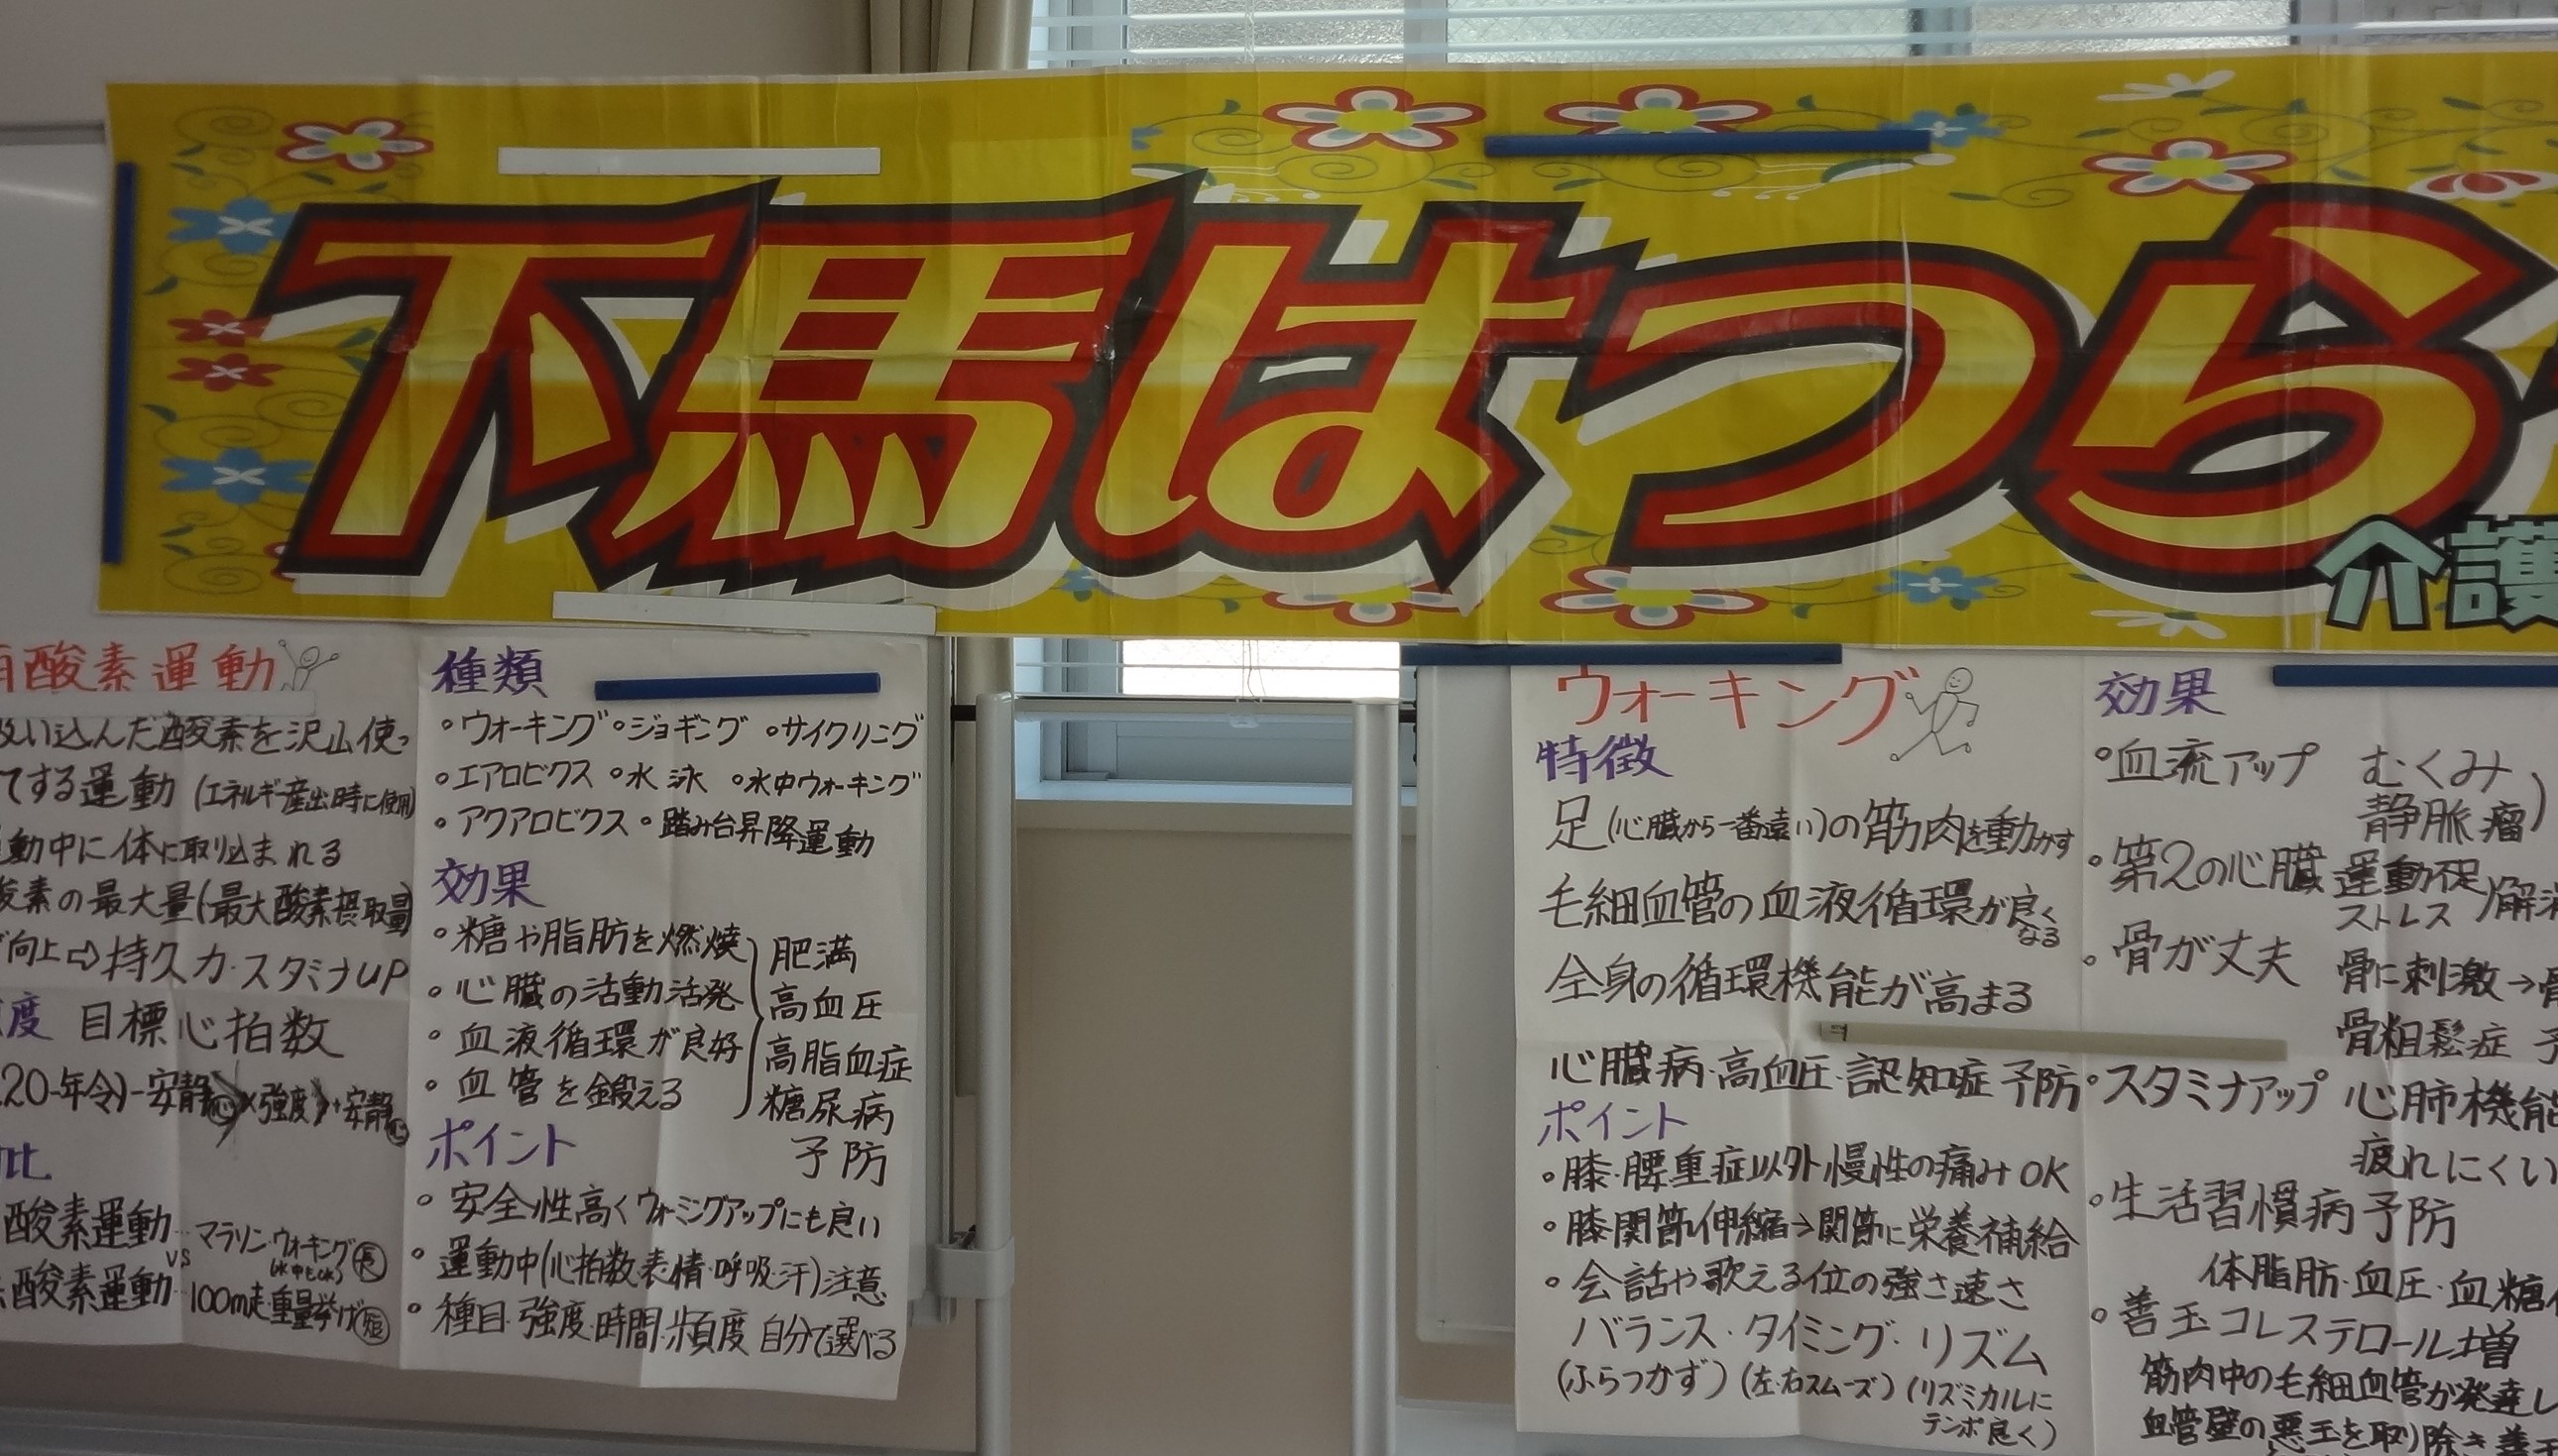 下馬はつら
介護
酸素運動
い込んだ酸素を沢山使っ
てする運動 (エネルギー産出時に使用)
動中に体に取り込まれる
素の最大量(最大酸素摂取量)
向上⇨持久力・スタミナUP
度 目標心拍数
20-年令)-安静心×強度》+安静心
比
酸素運動… マラソン・ウォーキング(長)
(水中もOK)
vs
酸素運動… 100m走・重量挙げ(短)
種類
◦ウォーキング◦ジョギング ◦サイクリング
◦エアロビクス ◦水泳 ◦水中ウォーキング
◦アクアロビクス◦踏み台昇降運動
効果
◦糖や脂肪を燃焼
◦心臓の活動活発
◦血液循環が良好
◦血管を鍛える
肥満
高血圧
高脂血症
糖尿病
予防
ポイント
◦安全性高くウォーミングアップにも良い
◦運動中(心拍数・表情・呼吸・汗)注意
◦種目・強度・時間・頻度 自分で選べる
ウォーキング
特徴
足(心臓から一番遠い)の筋肉を動かす
毛細血管の血液循環が良く
なる
全身の循環機能が高まる
心臓病・高血圧・認知症 予防
ポイント
◦膝・腰重症以外慢性の痛みOK
◦膝関節伸縮→関節に栄養補給
◦会話や歌える位の強さ速さ
バランス・タイミング・リズム
(ふらつかず)(左・右スムーズ)(リズミカルに
テンポ良く)
効果
◦血流アップ むくみ
静脈瘤)
◦第2の心臓 運動不足
ストレス)解
◦骨が丈夫 骨に刺激→
骨粗鬆症 予
◦スタミナアップ 心肺機能
疲れにくい
◦生活習慣病予防
体脂肪・血圧・血糖
◦善玉コレステロール増
筋肉中の毛細血管が発達し
血管壁の悪玉を取り除き善玉